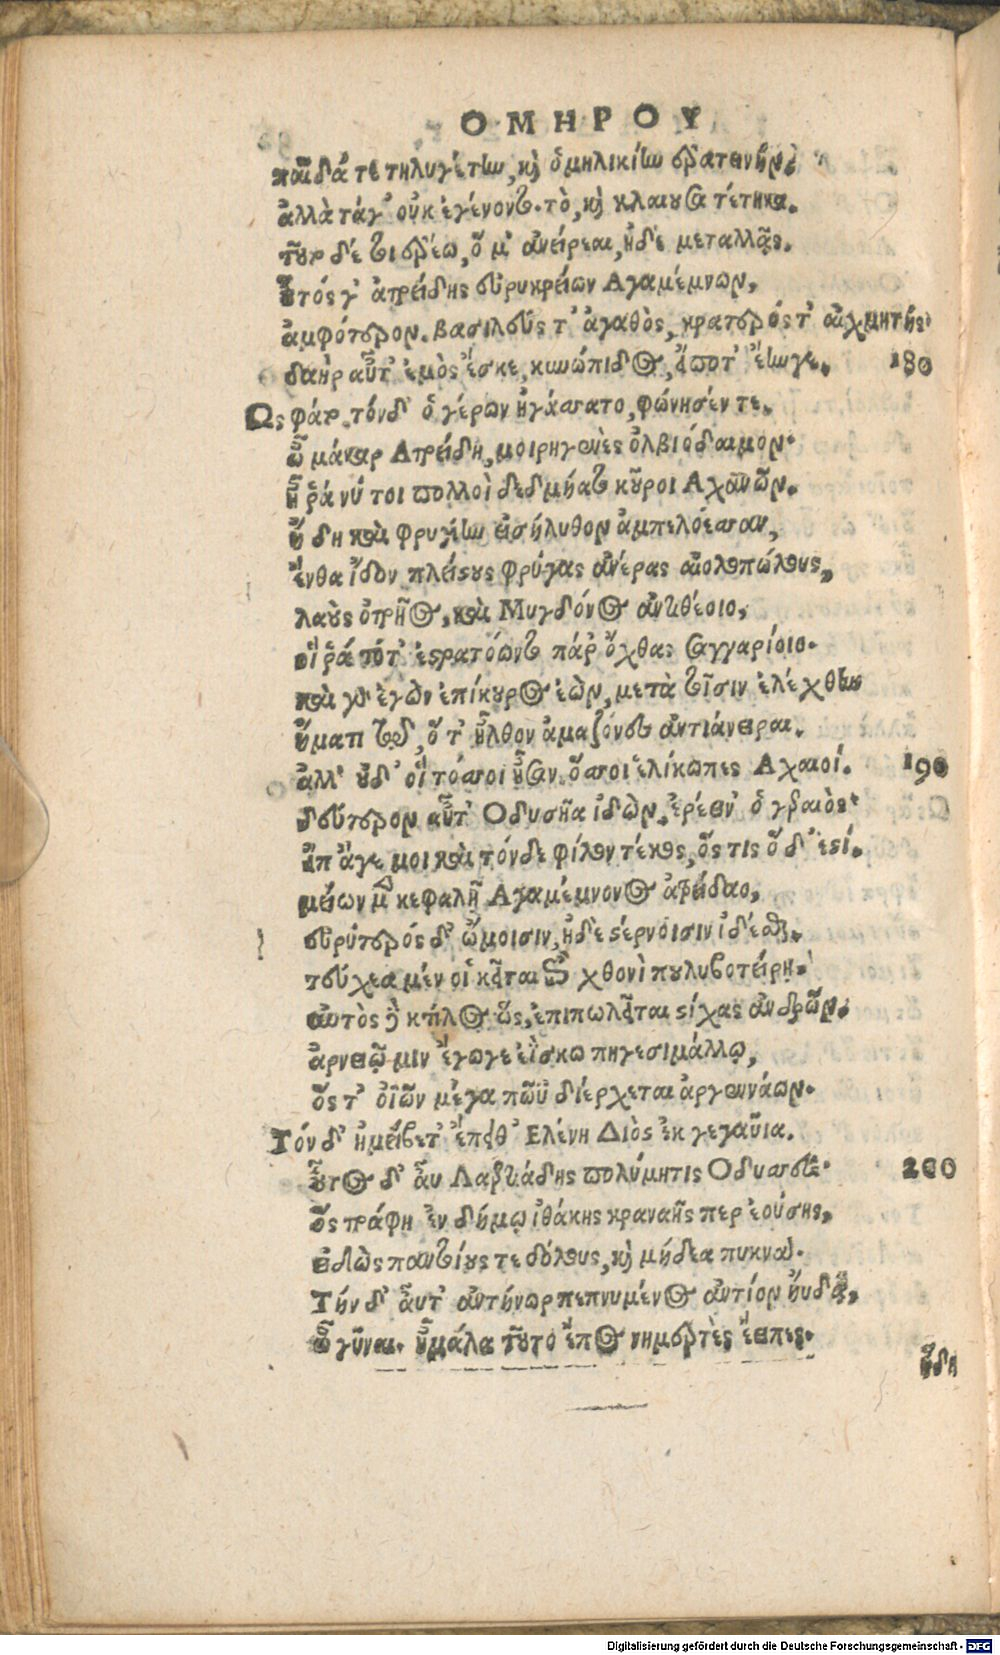 ΟΜΗΡΟΥ
παῖδά τε τηλυγέτην, καὶ ὁμηλικίην ἐρατεινήν.
ἀλλὰ τάγ' οὐκ ἐγένοντο. τὸ, καὶ κλαίουσα τέτηκα.
τοῦτο δέ τοι ἐρέω, ὅ μ' ἀνείρεαι, ἠδὲ μεταλλᾷς.
οὗτός γ' ἀτρείδης εὐρυκρείων Αγαμέμνων,
ἀμφότερον. βασιλεύς τ' ἀγαθὸς, κρατερός τ' αἰχμητής·
δαὴρ αὖτ' ἐμὸς ἔσκε, κυνώπιδος, εἴποτ' ἔην γε. 180
Ως φάτο. τόνδ' ὁ γέρων ἠγάσσατο, φώνησέν τε.
ὦ μάκαρ Ατρείδη, μοιρηγενὲς ὀλβιόδαιμον·
ἦ ῥά νύ τοι πολλοὶ δεδμήατο κοῦροι Αχαιῶν.
ἤδη καὶ φρυγίην εἰσήλυθον ἀμπελόεσσαν,
ἔνθα ἴδον πλείστους φρύγας ἀνέρας αἰολοπώλους,
λαοὺς ὀτρῆος, καὶ Μυγδόνος ἀντιθέοιο,
οἵ ῥά τότ' ἐστρατόωντο πάρ' ὄχθας σαγγαρίοιο.
καὶ γὰρ ἐγὼν ἐπίκουρος ἐὼν, μετὰ τοῖσιν ἐλέχθην
ἤματι τῷ, ὅ τ' ἦλθον ἀμαζόνες ἀντιάνειραι.
ἀλλ' οὐδ' οἵ τόσσοι ἦσαν, ὅσσοι ἑλίκωπες Αχαιοί. 190
δεύτερον αὖτ' Οδυσῆα ἰδὼν, ἐρέειν' ὁ γεραιός·
εἴπ' ἄγε μοι καὶ τόνδε φίλον τέκος, ὅς τις ὅδ' ἐστί.
μείων μὲν κεφαλῇ Αγαμέμνονος ἀτρείδαο,
εὐρύτερός δ' ὤμοισιν, ἠδὲ στέρνοισιν ἰδέσθαι.
τεύχεα μέν οἱ κεῖται ἐπὶ χθονὶ πουλυβοτείρῃ·
αὐτὸς δὲ κτίλος ὣς, ἐπιπωλεῖται στίχας ἀνδρῶν.
ἀρνειῷ μιν ἔγωγε ἐΐσκω πηγεσιμάλλῳ,
ὅς τ' ὀϊῶν μέγα πῶϋ διέρχεται ἀργεννάων.
Τόν δ' ἠμείβετ' ἔπειθ' Ελένη Διὸς ἐκ γεγαῦια.
οὗτος δ' αὖ Λαερτιάδης πολύμητις Οδυσσεύς· 200
ὃς τράφη ἐν δήμῳ ἰθάκης κραναῆς περ ἐούσης,
εἰδὼς παντοίους τε δόλους, καὶ μήδεα πυκνά.
Τήν δ' αὖτ' ἀντήνωρ πεπνυμένος ἀντίον ηὔδα,
ὦ γύναι. ἦ μάλα τοῦτο ἔπος νημερτὲς ἔειπες·
ἤδη
Digitalisierung gefördert durch die Deutsche Forschungsgemeinschaft - DFG